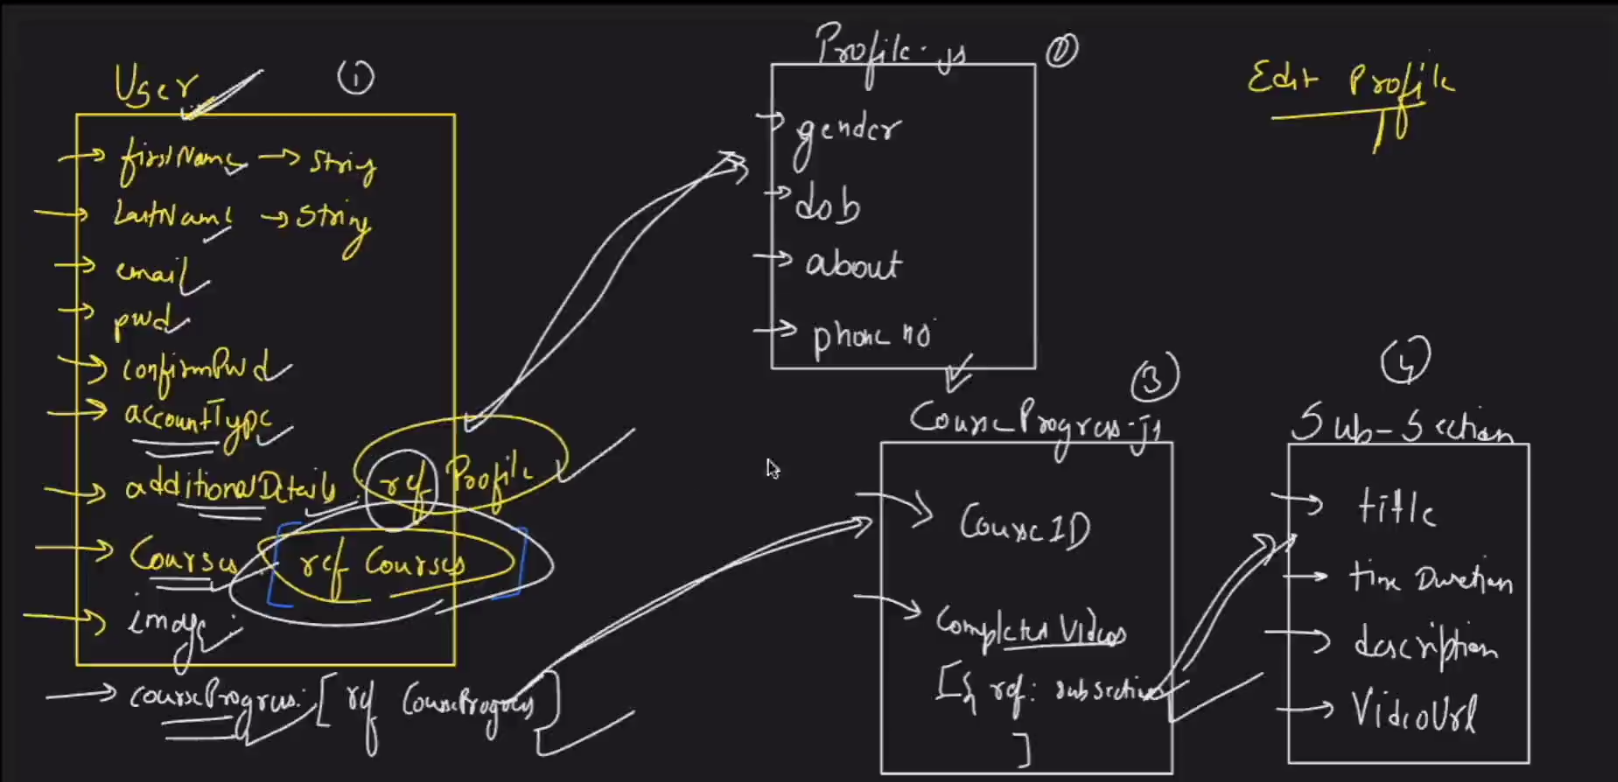 User ①
firstName → String
LastName → String
email
pwd
confirmPwd
accountType
additionalDetails . ref Profile
Courses . [ref Courses]
image
courseProgress: [ref CourseProgress]
Profile.js ②
gender
dob
about
phone no
Edit Profile
CourseProgress.js ③
CourseID
Completed Videos
[{ ref: subsection
]
④
Sub-Section
title
time Duration
description
VideoUrl